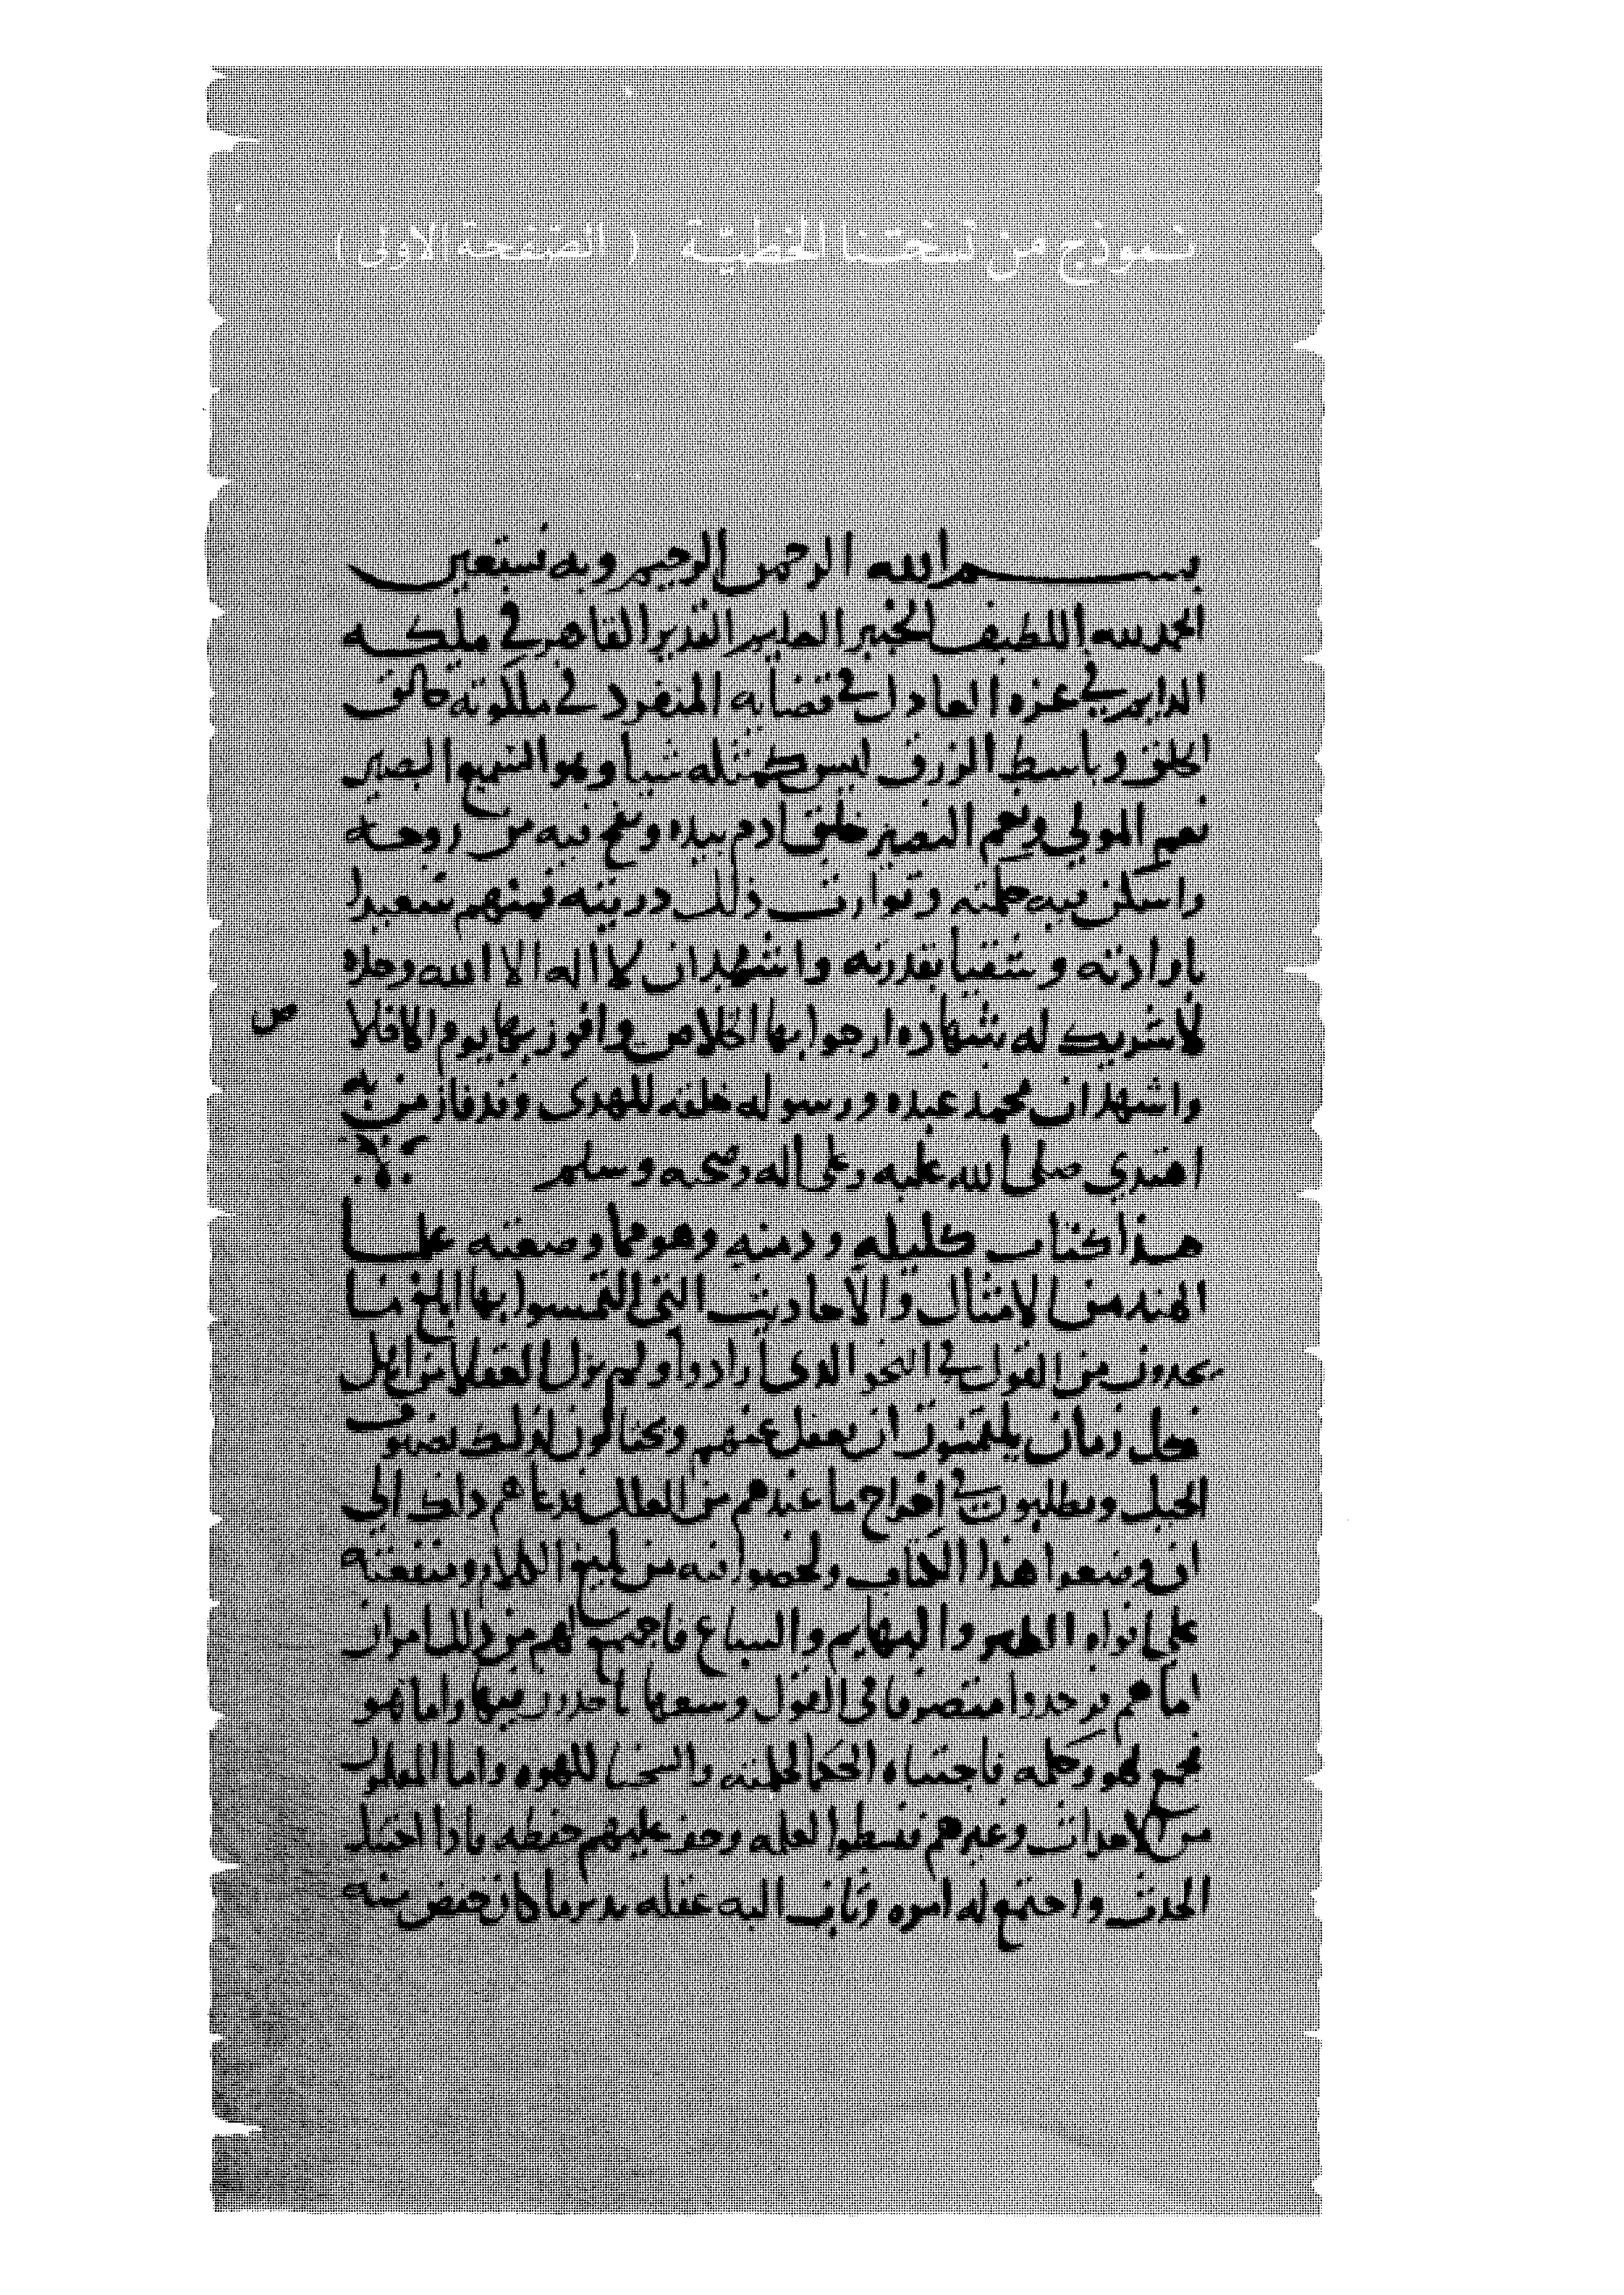 نموذج من نسختنا الخطيّة ( الصفحة الاولى )
بسم الله الرحمن الرحيم وبه نستعين
الحمد لله اللطيف الخبير العليم القدير القاهر في ملكه
الدايم في عزه العادل في قضايه المنفرد في ملكوته خالق
الخلق وباسط الرزق ليس كمثله شيا وهو السميع البصير
نعم المولي ونعم النصير خلق ادم بيده ونفخ فيه من روحه
واسكن فيه حكمته وتوارث ذلك دريته فمنهم سعيدا
بارادته وشقيا بقدرته واشهد ان لا اله الا الله وحده
لا شريك له شهاده ارجوا بها الخلاص وافوز بها يوم
ص
واشهد ان محمد عبده ورسوله خلقه للهدى وقد فاز من به
اهتدي صلى الله عليه وعلى اله وصحبه وسلم
هذا كتاب كليله ودمنه وهو مما وضعته علما
الهند من الامثال والاحاديث التى التمسوا بها ابلغ ما
يجدون من القول في النحو الدى ارادوا ولم يزل العقلا من اهل
كل زمان يلتمسون ان يعقل عنهم ويحتالون لذلك بصنوف
الحيل ويطلبون في اخراج ما عندهم من العلل فدعاهم داك الي
ان وضعوا هذا الكتاب ولخصوا فيه من بليغ الكلام ومتقنه
على افواه الطير والبهايم والسباع فاجتمع لهم من ذلك امران
اما هم فوجدوا متصرفا فى القول وسعها ياخدون فيها واما هو
فجمع لهو وحكمه فاجتباه الحكما لحكمته والسخفا للهوه واما المتعلمون
من الاحداث وغيرهم فنشطوا لعلمه وخف عليهم حفظه فادا احتنك
الحدث واجتمع له اموه وثاب اليه عقله تدبر ما كان حفض منه